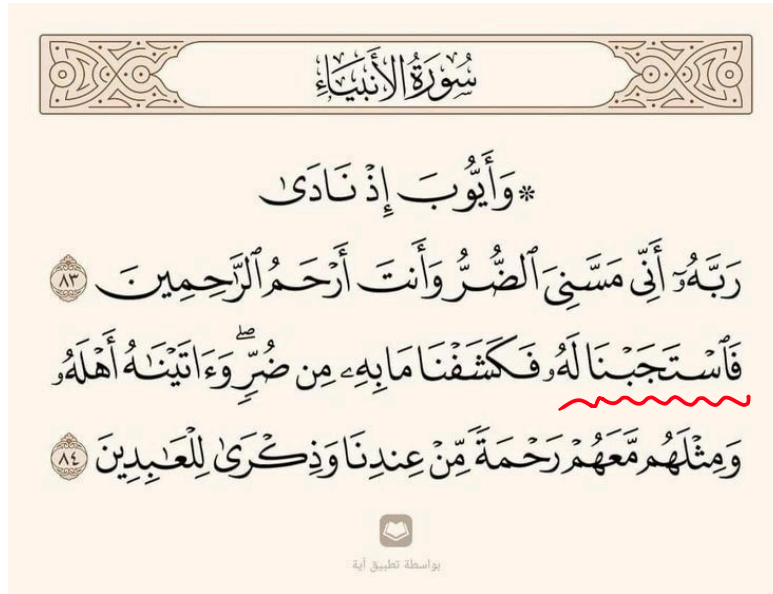 سُورَةُ الأَنبِيَاءِ
* وَأَيُّوبَ إِذْ نَادَىٰ
رَبَّهُۥٓ أَنِّي مَسَّنِيَ ٱلضُّرُّ وَأَنتَ أَرْحَمُ ٱلرَّٰحِمِينَ ٨٣
فَٱسْتَجَبْنَا لَهُۥ فَكَشَفْنَا مَا بِهِۦ مِن ضُرٍّۖ وَءَاتَيْنَٰهُ أَهْلَهُۥ
وَمِثْلَهُم مَّعَهُمْ رَحْمَةً مِّنْ عِندِنَا وَذِكْرَىٰ لِلْعَٰبِدِينَ ٨٤
بواسطة تطبيق آية